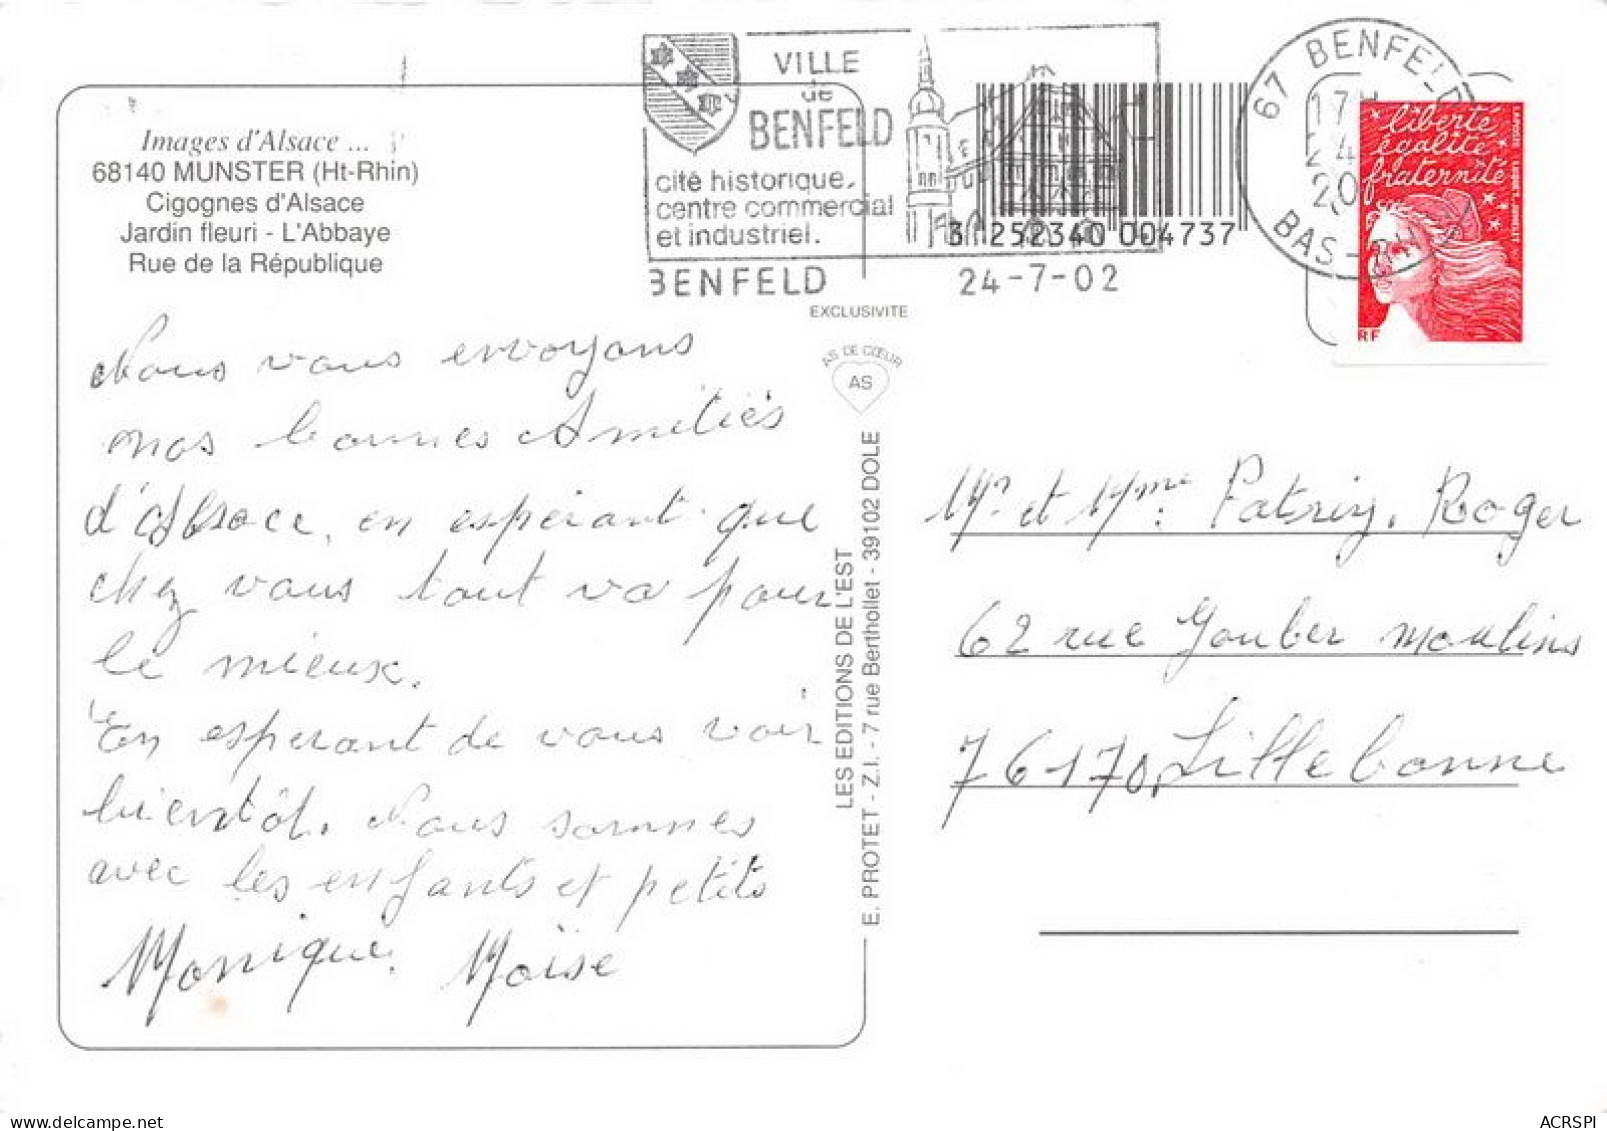 VILLE
de
BENFELD
cité historique,
centre commercial
et industriel.
BENFELD
24-7-02
67 BENFELD
17H
24
20
BAS-RHIN
3 252340 004737
liberté
égalité
fraternité
RF
Images d'Alsace ...
68140 MUNSTER (Ht-Rhin)
Cigognes d'Alsace
Jardin fleuri - L'Abbaye
Rue de la République
EXCLUSIVITE
AS DE CŒUR
AS
LES EDITIONS DE L'EST
E. PROTET - Z.I. - 7 rue Berthollet - 39102 DOLE
Nous vous envoyons
nos bonnes Amitiés
d'Alsace, en espérant que
chez vous tout va pour
le mieux.
En esperant de vous voir
bientôt. Nous sommes
avec les enfants et petits
Monique. Moïse
Mr et Mme Patrix, Roger
62 rue Goubermoulins
76170 Lillebonne
ACRSPI